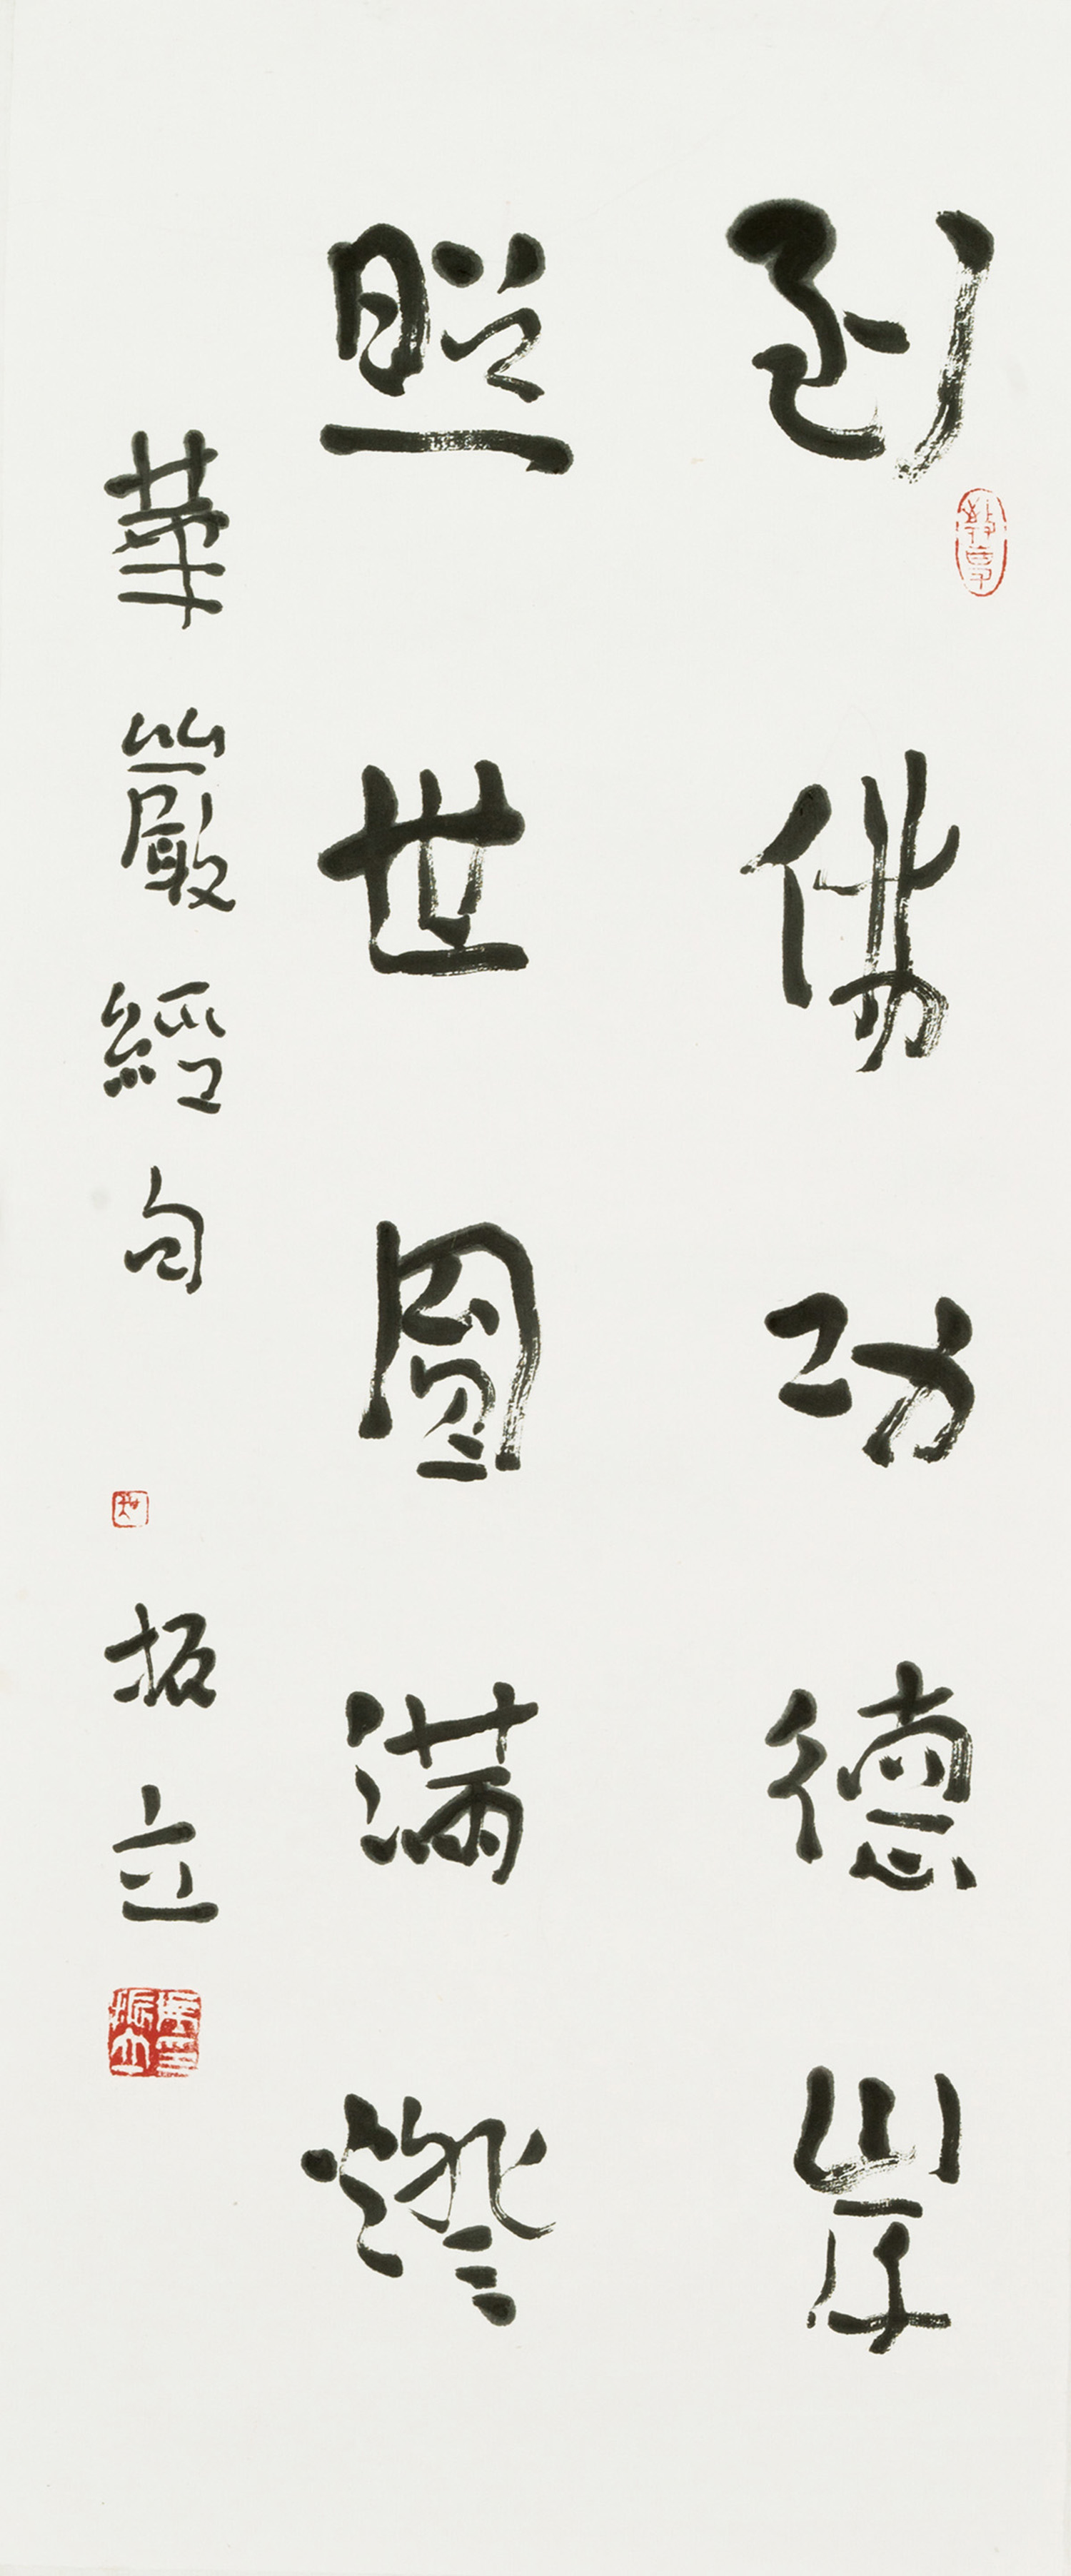 到佛功德岸
照世圓滿燈
華嚴經句 振立